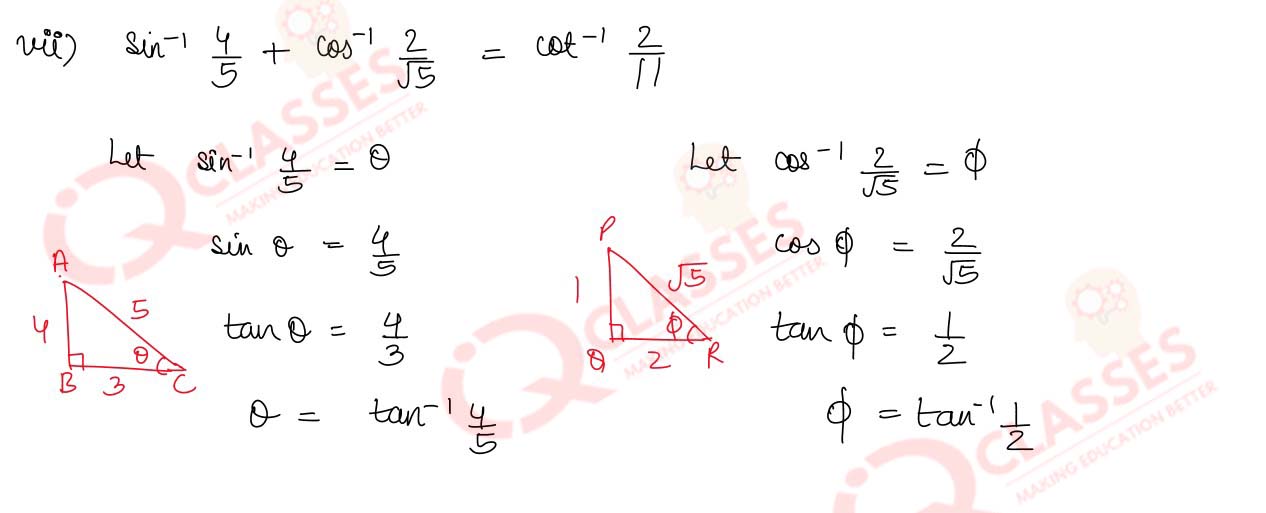 vii) sin⁻¹ 4/5 + cos⁻¹ 2/√5 = cot⁻¹ 2/11
Let sin⁻¹ 4/5 = θ
sin θ = 4/5
tan θ = 4/3
θ = tan⁻¹ 4/5
A
4
5
θ
B
3
C
Let cos⁻¹ 2/√5 = ϕ
cos ϕ = 2/√5
tan ϕ = 1/2
ϕ = tan⁻¹ 1/2
P
1
√5
ϕ
Q
2
R
IQ CLASSES
MAKING EDUCATION BETTER
IQ CLASSES
MAKING EDUCATION BETTER
IQ CLASSES
MAKING EDUCATION BETTER